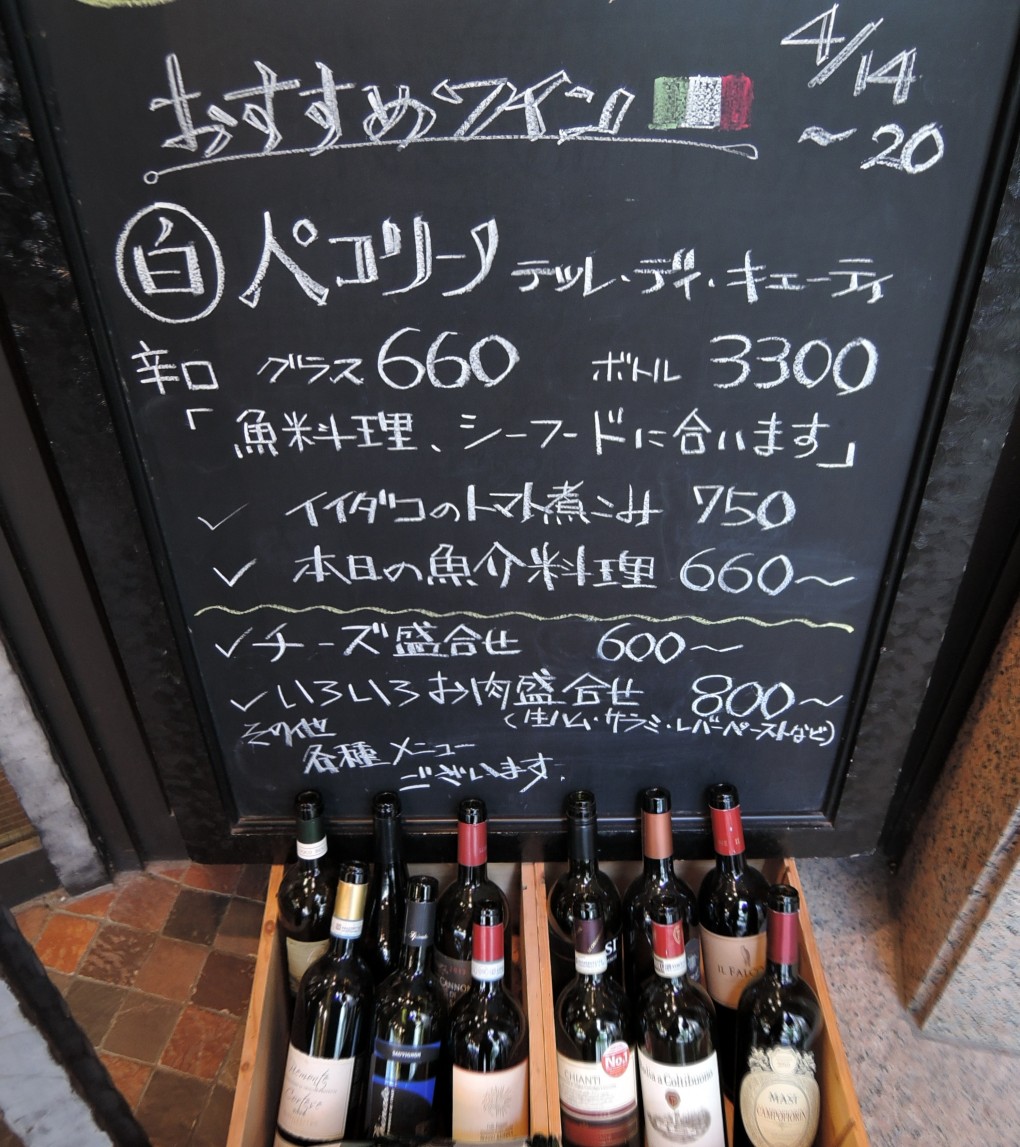 おすすめワイン
4/14
～20
白 ペコリーノ テッレ・ディ・キエーティ
辛口 グラス 660 ボトル 3300
「魚料理、シーフードに合います」
✓ イイダコのトマト煮こみ 750
✓ 本日の魚介料理 660～
✓チーズ盛合せ 600～
✓いろいろお肉盛合せ 800～
(生ハム・サラミ・レバーペーストなど)
その他
各種メニュー
ございます.
CANNON
IL FALO
SAUVIGNON
No.1
CHIANTI
Badia a Coltibuono
MASI
CAMPOFIORIN